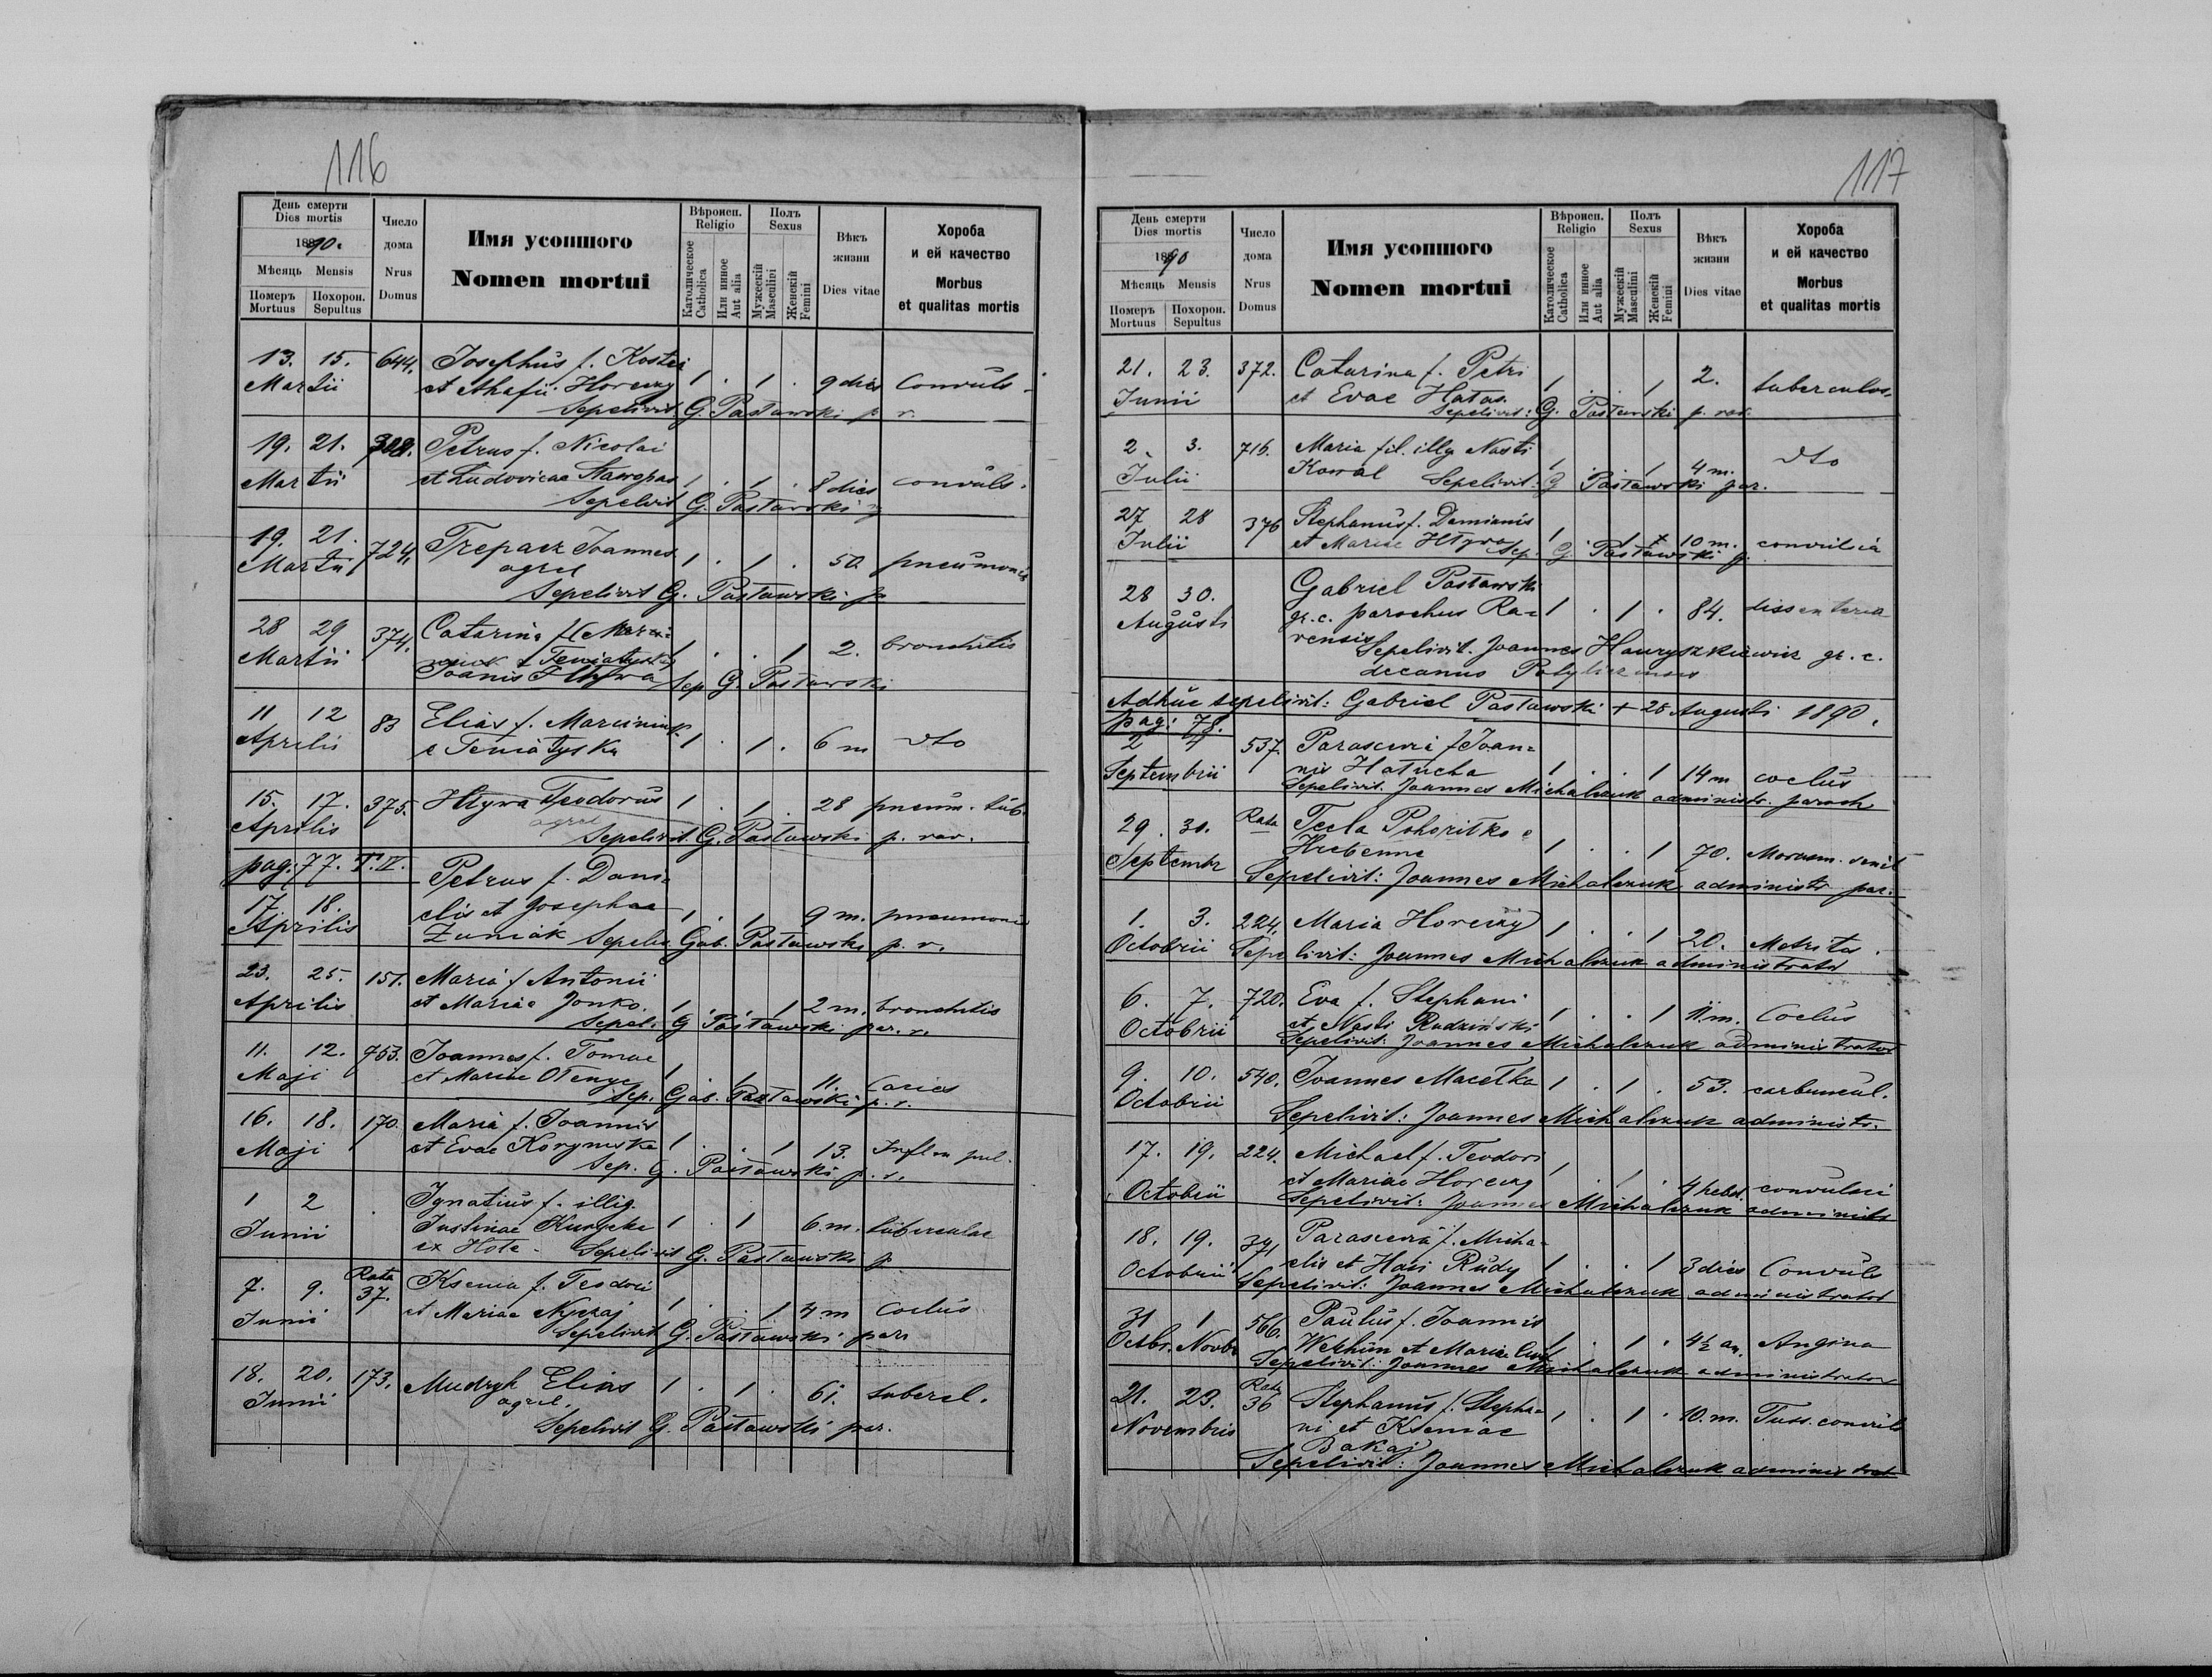 116
День смерти
Dies mortis
1890.
Мѣсяць Mensis
Померъ Mortuus
Похорон. Sepultus
Число дома
Nrus Domus
Имя усопшого
Nomen mortui
Вѣроисп. Religio
Католическое Catholica
Или иное Aut alia
Полъ Sexus
Мужескій Masculini
Женскій Femini
Вѣкъ жизни
Dies vitae
Хороба и ей качество
Morbus et qualitas mortis
13. 15. 644. Josephus f. Kostei
Martii et Ahafii Horeczy 1 . 1 . 9 dies Convuls.
Sepelivit G. Pasławski p. r.
19. 21. 308. Petrus f. Nicolai
Martii et Ludovicae 1 . 1 . 8 dies convuls.
Sepelivit G. Pasławski
19. 21. 724. Trepacz Joannes 1 . 1 . 50 pneumonia
Martii agrcl
Sepelivit G. Pasławski p
28 29 374. Catarina
Martii 1 . . 1 2. bronchitis
Joanis Hływa Sep G. Pasławski
11 12 83 Elias f. Marciniuk
Aprilis e Teniatyska 1 . 1 . 6 m dto
15. 17. 375. Hływa Teodorus 1 . 1 . 28 pneum. tub.
Aprilis agrcl
Sepelivit G. Pasławski p. rav.
pag. 77. T. II.
17 18. Petrus f. Dani-
Aprilis elis et Josephae 1 . 1 9 m. pneumonia
Żuniak Sepeliv. Gab. Pasławski p. r.
23. 25. 151. Maria f Antonii
Aprilis et Mariae Jonko. 1 . . 1 2 m. bronchitis
Sepel. G Pasławski par. r.
11. 12. 753. Joannes f. Tomae
Maji et Mariae 1 . 1 11. Caries
Sep. Gab. Pasławski p. r.
16. 18. 170. Maria f. Joannis
Maji et Evae 1 . . 1 13. Inflm pul.
Sep. G. Pasławski p. r.
1 2 Ignatius f. illig.
Junii Justinae 1 . 1 6. m. tuberculae
ex Hole. Sepelivit G. Pasławski p
7. 9. Rata 37. Ksenia f. Teodori
Junii et Mariae Nyczaj 1 . . 1 4 m Coelus
Sepelivit G. Pasławski par
18. 20. 173. Mudryk Elias 1 . 1 . 61. tubercl.
Junii agrcl.
Sepelivit G. Pasławski par.
117
День смерти
Dies mortis
1890
Мѣсяць Mensis
Померъ Mortuus
Похорон. Sepultus
Число дома
Nrus Domus
Имя усопшого
Nomen mortui
Вѣроисп. Religio
Католическое Catholica
Или иное Aut alia
Полъ Sexus
Мужескій Masculini
Женскій Femini
Вѣкъ жизни
Dies vitae
Хороба и ей качество
Morbus et qualitas mortis
21. 23. 372. Catarina f. Petri
Junii et Evae Hałas. 1 . . 1 2. tuberculos.
Sepelivit: G. Pasławski p. rav.
2 3. 716. Maria fil. illg Nasti
Julii Kowal 1 . . 1 4 m. dto
Sepelivit: G Pasławski par.
27 28 376 Stephanus f. Damianis
Julii et Mariae Hływa 1 . 10 m. convulsia
Sep. G. Pasławski p.
28 30. Gabriel Pasławski
Augusti gr. c. parochus Ra- 1 . 1 . 84. dissenteria
vensis
Sepelivit. Joannes Hawryszkiewicz gr. c.
decanus Potyliczensis
Adhuc sepelivit: Gabriel Pasławski + 28 Augusti 1890.
pag: 78.
2 4 537. Parascevia f Joan-
Septembrii nis Hałucha 1 . . 1 14 m coclus
Sepelivit. Joannes Michalczuk administr. paroch
29. 30. Rata Tecla Pohoriłko e
Septembr Hrebenne 1 . . 1 70. Morasm. senil
Sepelivit: Joannes Michalczuk administr par.
1. 3. 224. Maria Horeczy 1 . . 1 20. Metrita.
Octobrii Sepelivit: Joannes Michalczuk administrator
6. 7. 720. Eva f. Stephani
Octobrii et Nasti Rudzinski 1 . . 1 11. m. Coclus
Sepelivit: Joannes Michalczuk administrator
9. 10. 540. Joannes Macełka 1 . 1 . 53. carbuncul.
Octobrii Sepelivit: Joannes Michalczuk administr.
17. 19. 224. Michael f. Teodori
Octobrii et Mariae Horeczy 1 . 1 . 4 hebd. convulsii
Sepelivit: Joannes Michalczuk administr
18. 19. 371 Parascevia f. Micha-
Octobrii elis et Hasi Rudy 1 . . 1 3 dies Convuls
Sepelivit: Joannes Michalczuk administrator
31 1 566. Paulus f. Joannis
Octbr. Novbr et Mariae 1 . 1 . 4½ an. Angina
Sepelivit: Joannes Michalczuk administrator
21. 23. Rata 36 Stephanus f. Stepha-
Novembris ni et Kseniae 1 . 1 . 10. m. Tuss. convuls
Bakaj
Sepelivit: Joannes Michalczuk administrat